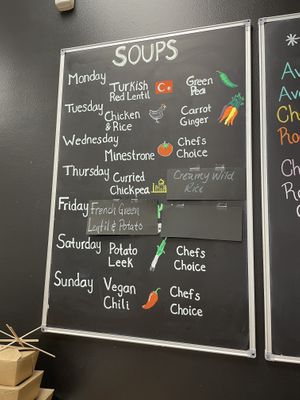 SOUPS
Monday
Turkish
Red Lentil
Green
Pea
Tuesday
Chicken
& Rice
Carrot
Ginger
Wednesday
Minestrone
Chefs
Choice
Thursday
Curried
Chickpea
Creamy Wild
Rice
Friday
French Green
Lentil & Potato
Saturday
Potato
Leek
Chefs
Choice
Sunday
Vegan
Chili
Chefs
Choice